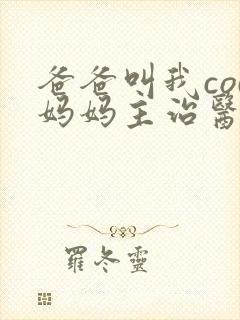 爸爸叫我co
妈妈主治醫
羅冬靈